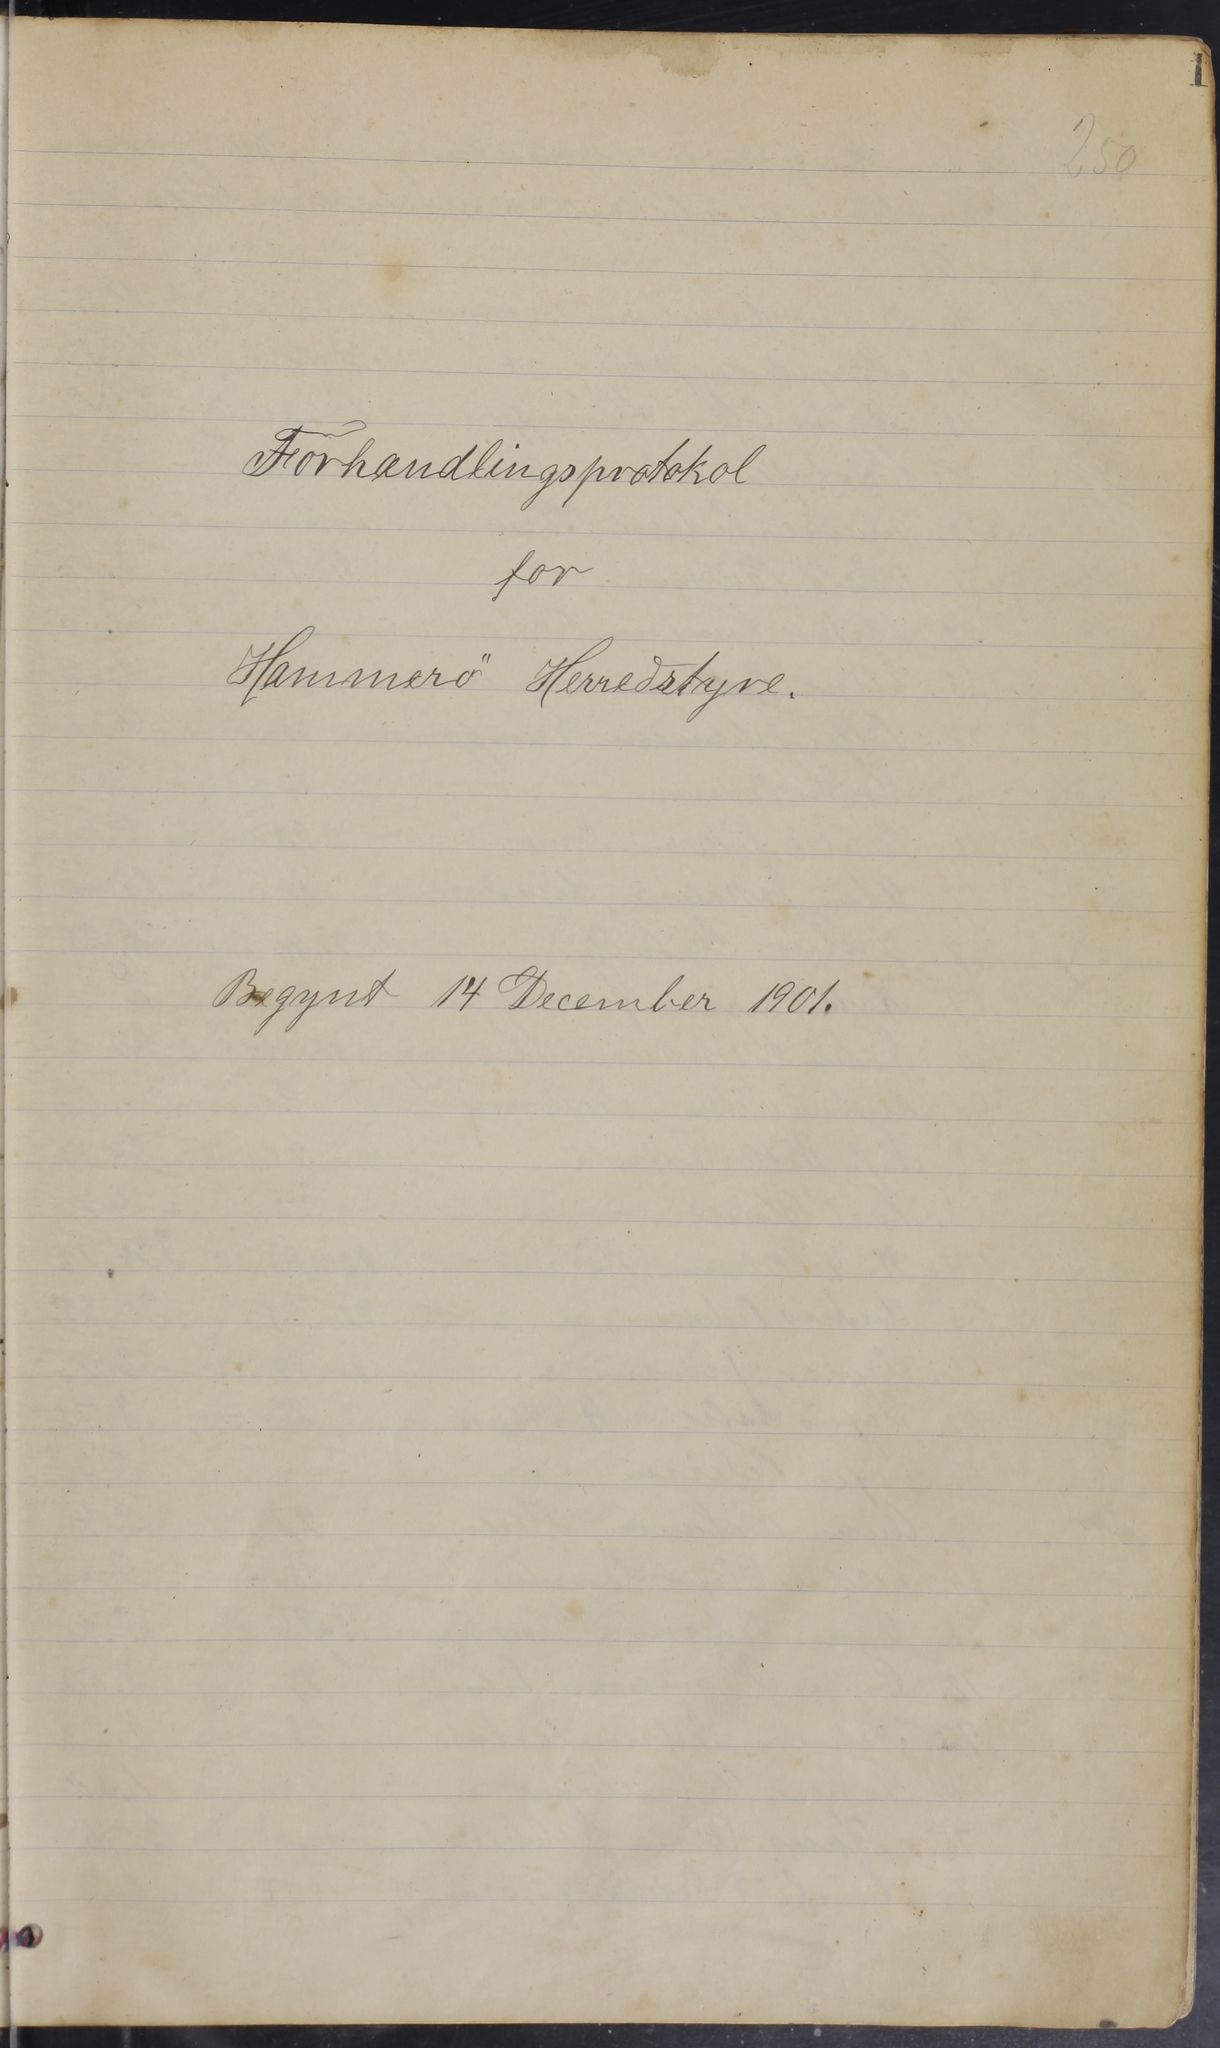 1
250
Forhandlingsprotokol
for
Hammerö Herredstyre.
Begynt 14 December 1901.